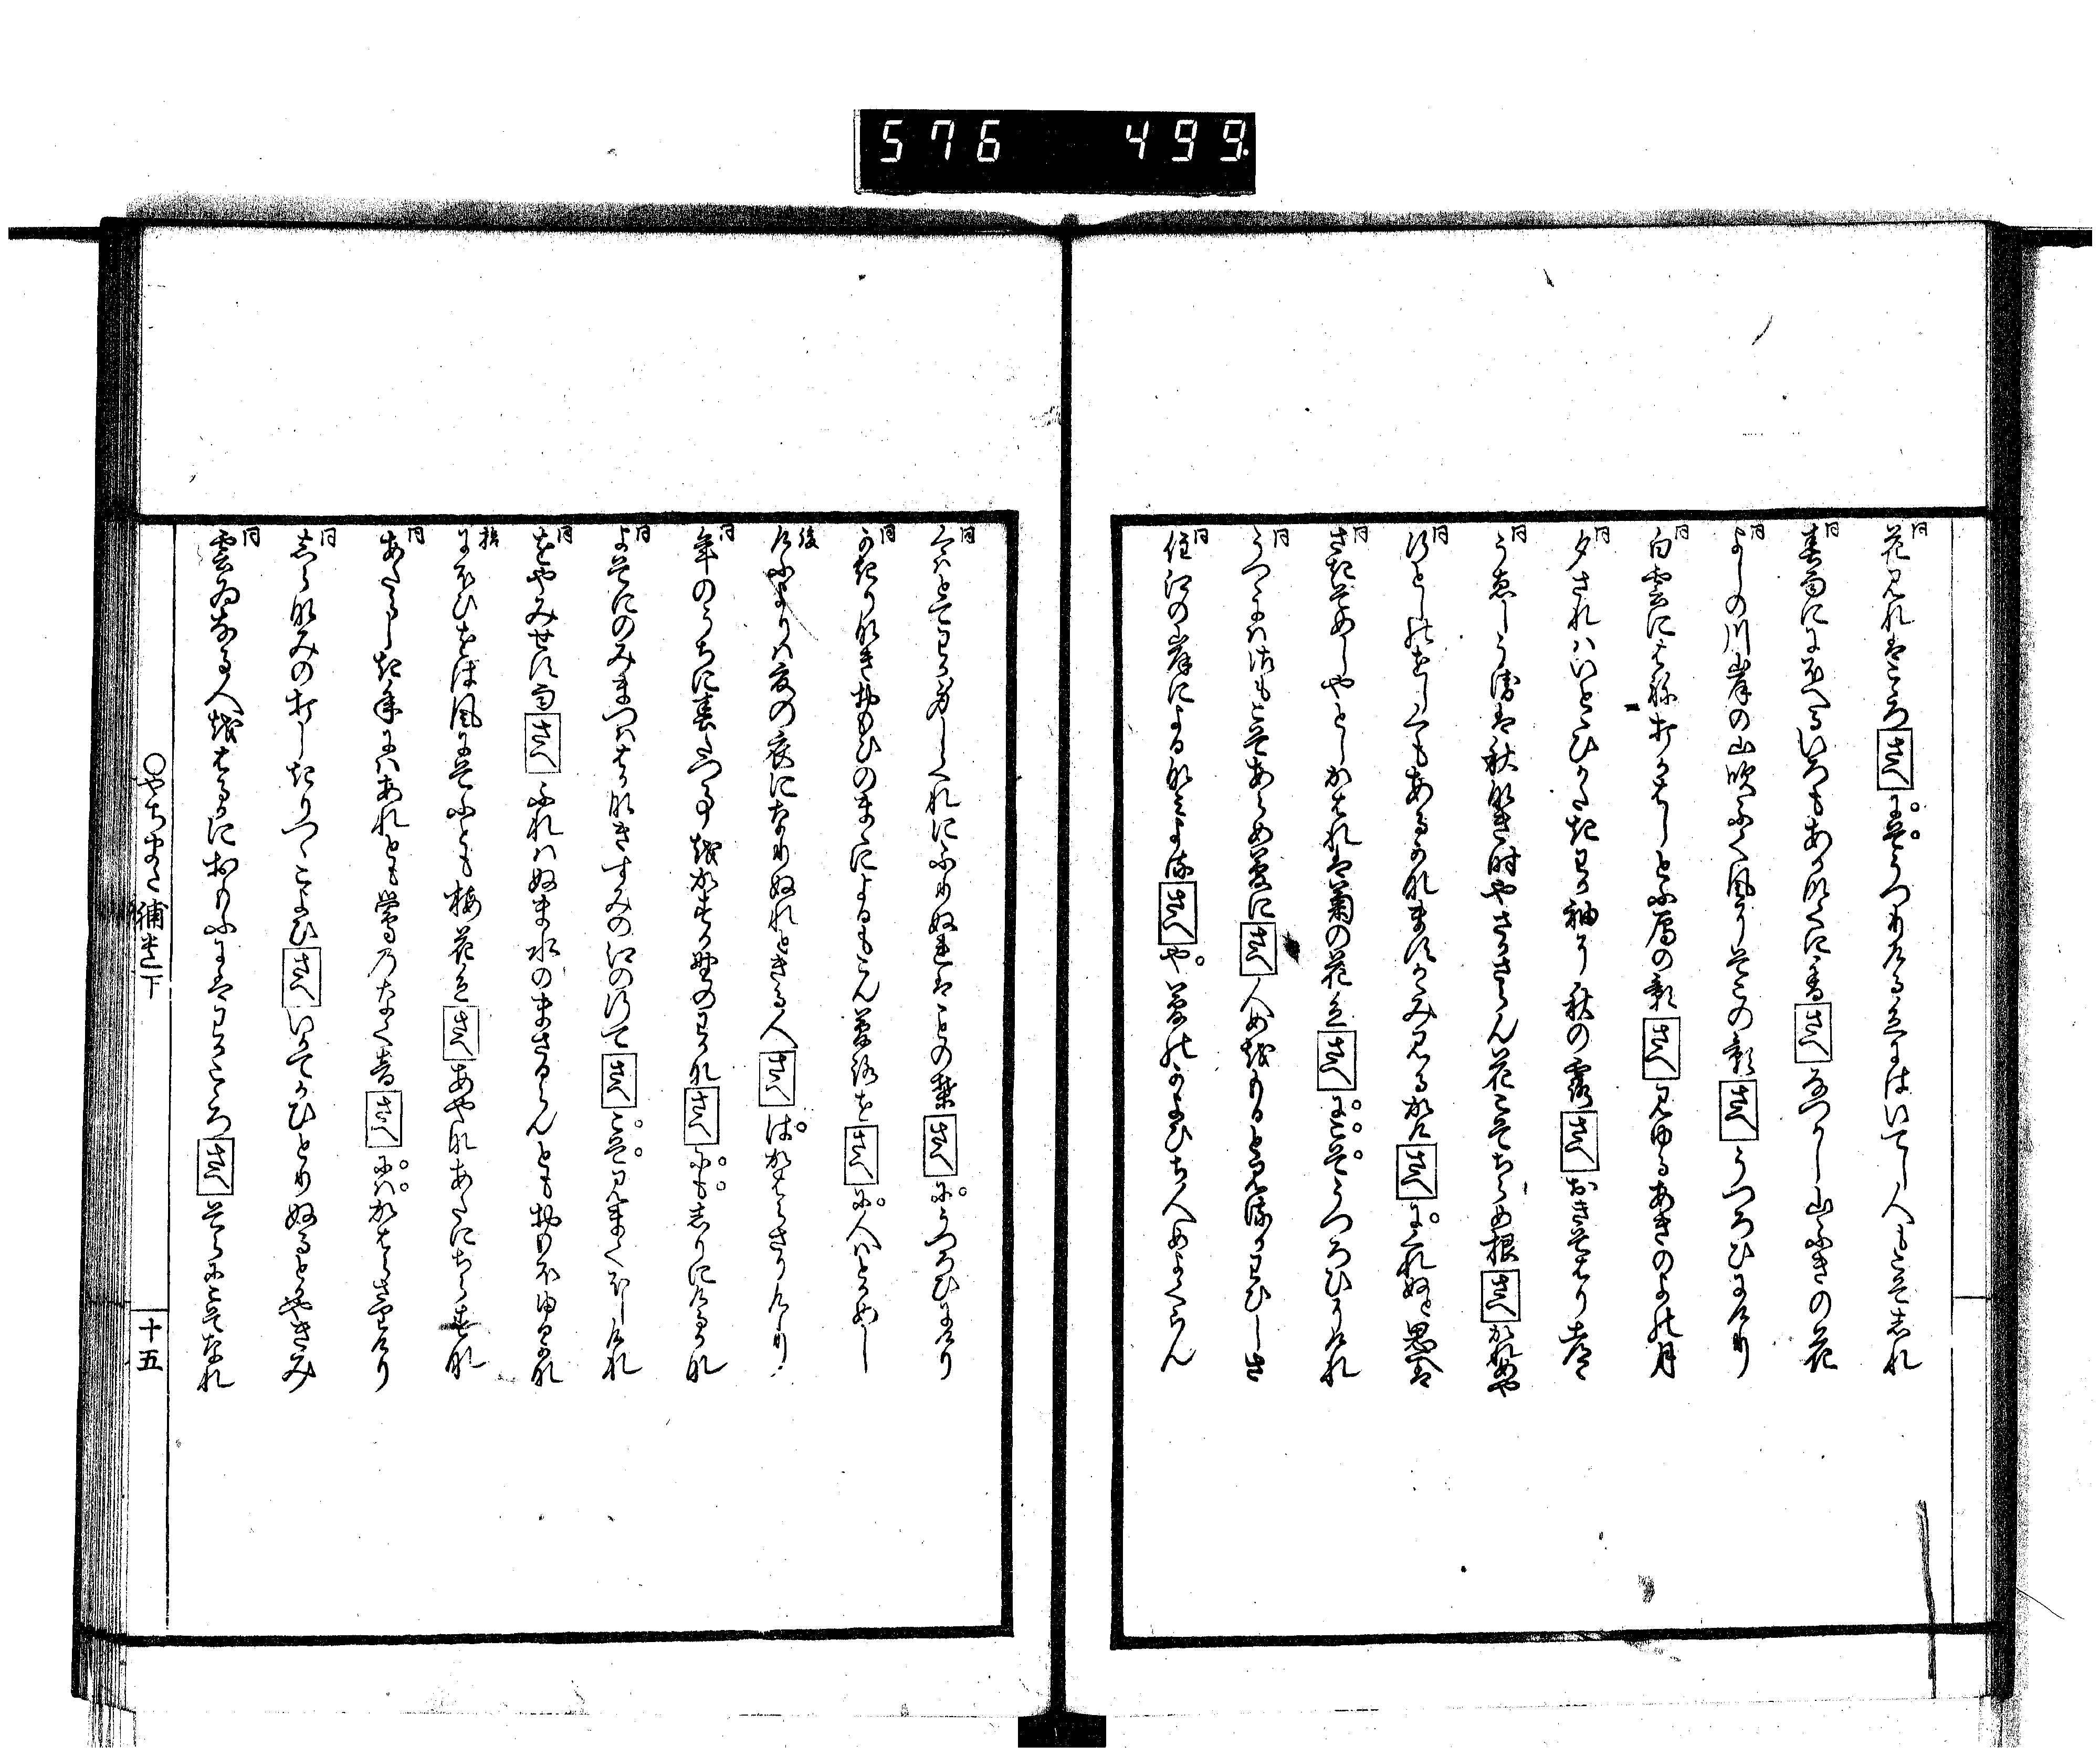 576 499
同 花見れはこゝろさへにそうつりけるいろにはいてし人もこそしれ
同 春雨ににほへるいろもあかなくに香さへなつかし山ふきの花
同 よしの川岸の山吹ふく風にそこの影さへうつろひにけり
同 白雲にはね打かはしとふ雁の影さへ見ゆるあきのよの月
同 夕されハいとゝひかたきわか袖に秋の露さへおきそはりつゝ
同 うゑしうゑは秋なき時やさかさらん花こそちらめ根さへかれめや
同 行としのをしくもあるかなますかゝみみるかけさへにくれぬと思へは
同 さきそめしやとしかはれは菊の花色さへにこそうつろひにけれ
同 うつゝにハさもこそあらめ夢にさへ人めをもるとみるかわひしさ
同 住江の岸による浪よるさへや夢のかよひち人めよくらん
同 今ハとてわか身しくれにふりぬれはことの葉さへにうつろひにけり
同 かきりなき思ひのまゝによるもこん夢路をさへに人ハとかめし
後 けふよりハ夏の衣になりぬれときる人さへはかはらさりけり
同 年のうちに春たつ事をかすか野のわかなさへにもしりにけるかな
同 よそにのみまつハはかなきすみの江の行てさへこそ見まくほしけれ
同 をやみせす雨さへふれハぬま水のまさるらんとも思ほゆるかな
拾 にほひをは風にそふとも梅花色さへあやなあたにちらすな
同 あたらしき年にハあれとも鶯のなく音さへにハかはらさりけり
同 しらなみの打しきりつゝこよひさへいかてかひとりぬるとかやきみ
同 雲ゐなる人をはるかにおもふにはわかこゝろさへそらにこそなれ
○やちまた補遺下 十五